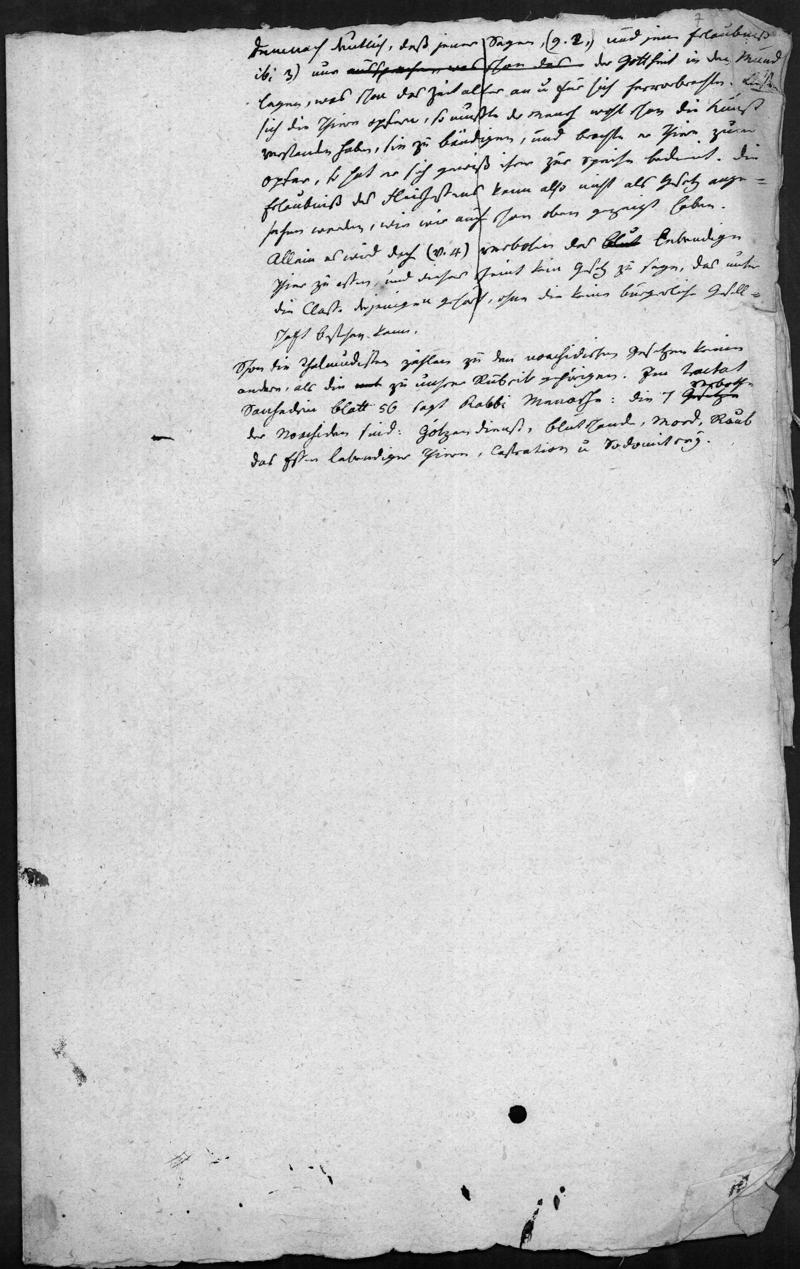 7
demnach deutlich, daß jener Segen, (9. 2,) und jene Erlaubniß
ib: 3) nur ausgesprochen, was schon das der Gottheit in den Mund
legen, was schon das Zeitalter an u für sich hervorbrachte. Ließen
sich die Thiere opfern, so mußte der Mensch wohl schon die Kunst
verstanden haben, sie zu bändigen, und brachte er Thiere zum
Opfer, so hat er sich gewiß ihrer zur Speise bedient. Die
Erlaubniß des Fleischessens kann also nicht als Gesetz ange=
sehen werden, wie wir auch schon oben gezeigt haben.
Allein es wird doch (v. 4) verboten das Blut Lebendiger
Thiere zu essen, und dieses scheint kein Gesetz zu seyn, das unter
die Classe derjenigen gehört, ohne die keine bürgerliche Gesell=
schaft bestehen kann.
Schon die Thalmudisten zählen zu den noachidischen Gesetzen keine
andern, als die zu unsrer Rubrik gehörigen. Im Tractat
Sanhedrin Blatt 56 sagt Rabbi Menasche: die 7 Gesetze Verbothe
der Noachiden sind: Götzendienst, Blutschande, Mord, Raub
das Essen lebendiger Thiere, Castration u Sodomiterey.